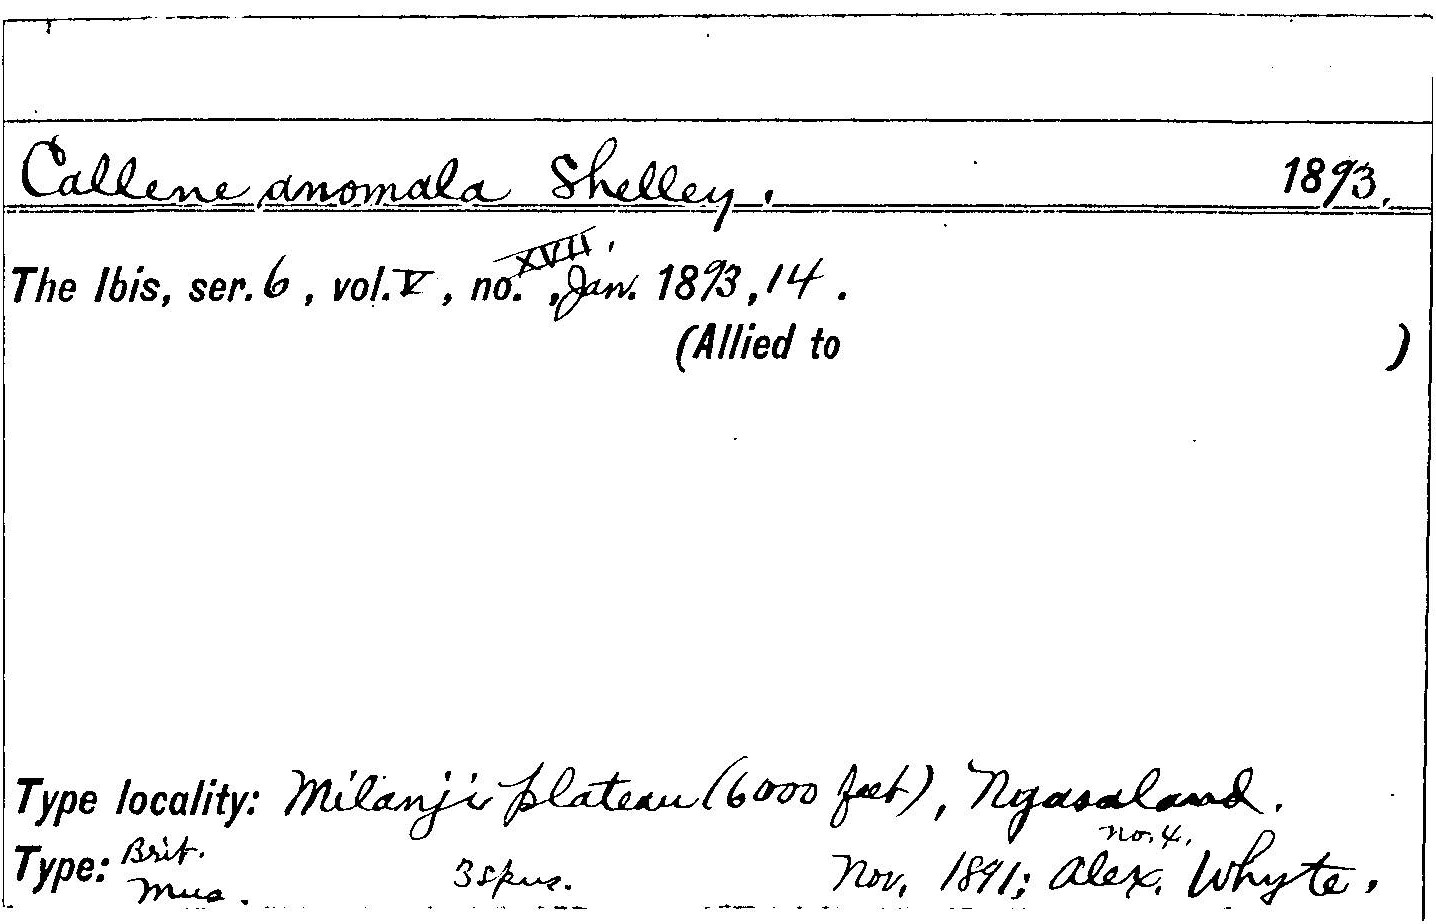 Callene anomala Shelley. 1893.
The Ibis, ser. 6, vol. V, no. XVII., Jan. 1893, 14.
(Allied to )
Type locality: Milanji plateau (6000 feet), Nyasaland.
Type: Brit. Mus. 3 spns. Nov. 1891; no. 4. Alex. Whyte.